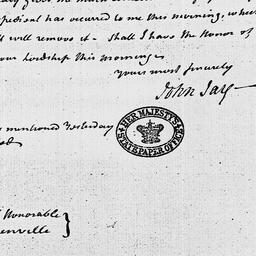 expedient has occurred to me this morning, whic
ll will remove it - Shall I have the Honor of
your Lordship this morning
yours most sincerely
John Jay
s mentioned Yesterday
HER MAJESTY'S
STATE PAPER OFFICE
Honorable
enville